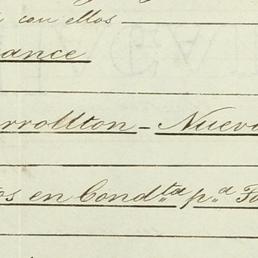 con ellos
ance
rrollton - Nueva
os en Cond.ta p.a